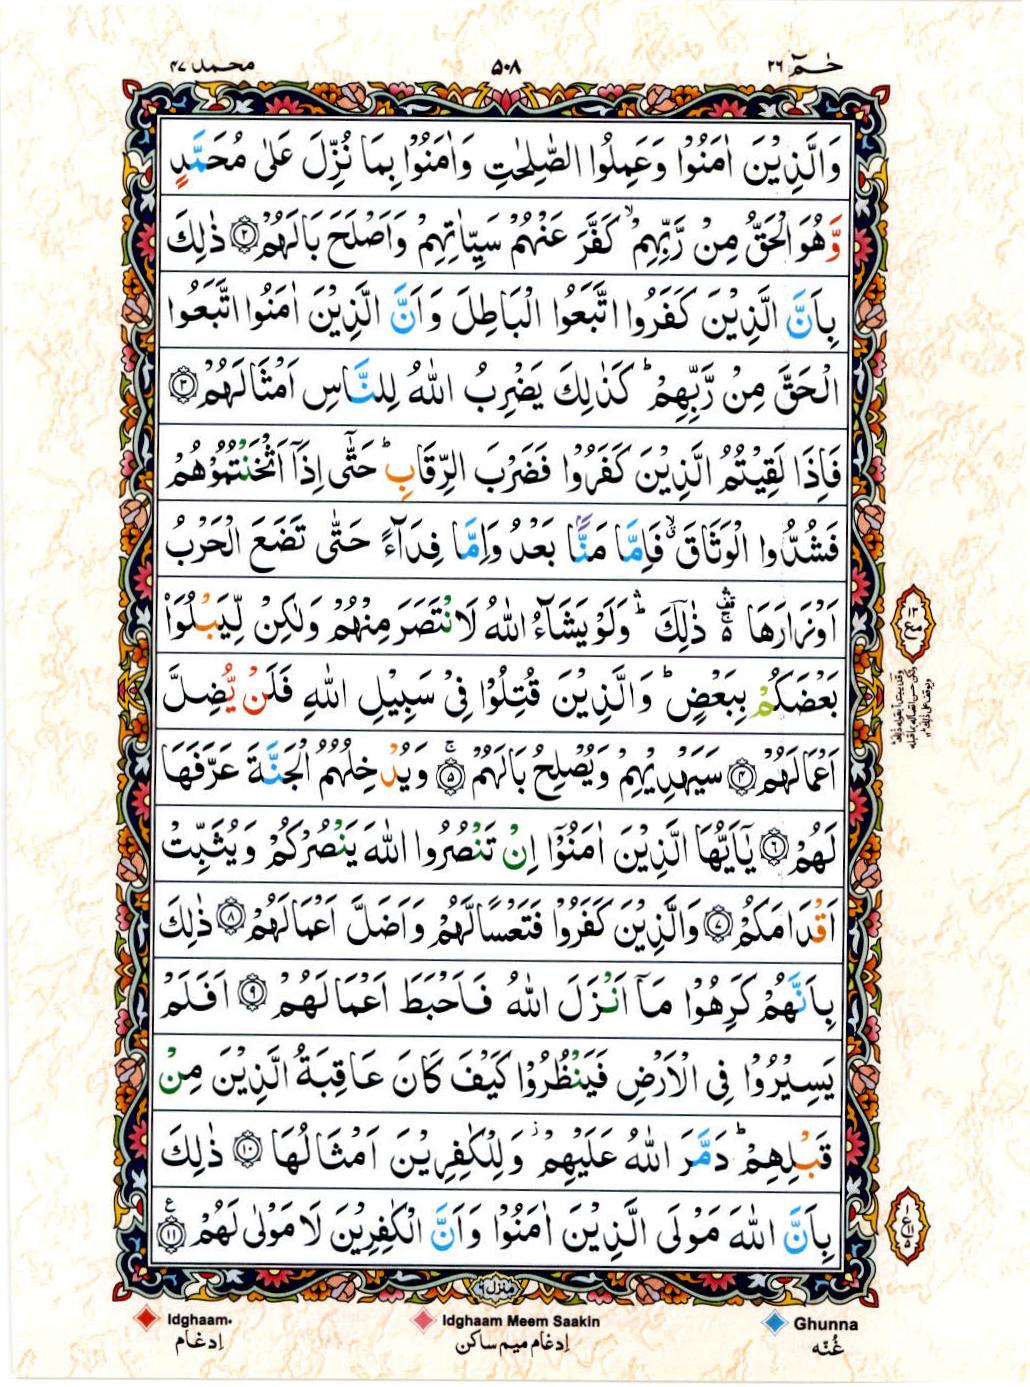 حٰمٓ ٢٦
٥٠٨
محمد ٤٧
وَالَّذِيْنَ اٰمَنُوْا وَعَمِلُوا الصّٰلِحٰتِ وَاٰمَنُوْا بِمَا نُزِّلَ عَلٰى مُحَمَّدٍ
وَّهُوَ الْحَقُّ مِنْ رَّبِّهِمْ ۙ كَفَّرَ عَنْهُمْ سَيِّاٰتِهِمْ وَاَصْلَحَ بَالَهُمْ ﴿٢﴾ ذٰلِكَ
بِاَنَّ الَّذِيْنَ كَفَرُوا اتَّبَعُوا الْبَاطِلَ وَاَنَّ الَّذِيْنَ اٰمَنُوا اتَّبَعُوا
الْحَقَّ مِنْ رَّبِّهِمْ ؕ كَذٰلِكَ يَضْرِبُ اللّٰهُ لِلنَّاسِ اَمْثَالَهُمْ ﴿٣﴾
فَاِذَا لَقِيْتُمُ الَّذِيْنَ كَفَرُوْا فَضَرْبَ الرِّقَابِ ؕ حَتّٰٓى اِذَاۤ اَثْخَنْتُمُوْهُمْ
فَشُدُّوا الْوَثَاقَ ۙ فَاِمَّا مَنًّۢا بَعْدُ وَاِمَّا فِدَآءً حَتّٰى تَضَعَ الْحَرْبُ
اَوْزَارَهَا ۛ۬ ذٰلِكَ ۛؕ وَلَوْ يَشَآءُ اللّٰهُ لَانْتَصَرَ مِنْهُمْ وَلٰكِنْ لِّيَبْلُوَا۟
بَعْضَكُمْ بِبَعْضٍ ؕ وَالَّذِيْنَ قُتِلُوْا فِيْ سَبِيْلِ اللّٰهِ فَلَنْ يُّضِلَّ
اَعْمَالَهُمْ ﴿٤﴾ سَيَهْدِيْهِمْ وَيُصْلِحُ بَالَهُمْ ۚ ﴿٥﴾ وَيُدْخِلُهُمُ الْجَنَّةَ عَرَّفَهَا
لَهُمْ ﴿٦﴾ يٰٓاَيُّهَا الَّذِيْنَ اٰمَنُوْۤا اِنْ تَنْصُرُوا اللّٰهَ يَنْصُرْكُمْ وَيُثَبِّتْ
اَقْدَامَكُمْ ﴿٧﴾ وَالَّذِيْنَ كَفَرُوْا فَتَعْسًا لَّهُمْ وَاَضَلَّ اَعْمَالَهُمْ ﴿٨﴾ ذٰلِكَ
بِاَنَّهُمْ كَرِهُوْا مَاۤ اَنْزَلَ اللّٰهُ فَاَحْبَطَ اَعْمَالَهُمْ ﴿٩﴾ اَفَلَمْ
يَسِيْرُوْا فِى الْاَرْضِ فَيَنْظُرُوْا كَيْفَ كَانَ عَاقِبَةُ الَّذِيْنَ مِنْ
قَبْلِهِمْ ؕ دَمَّرَ اللّٰهُ عَلَيْهِمْ ؗ وَلِلْكٰفِرِيْنَ اَمْثَالُهَا ﴿١٠﴾ ذٰلِكَ
بِاَنَّ اللّٰهَ مَوْلَى الَّذِيْنَ اٰمَنُوْا وَاَنَّ الْكٰفِرِيْنَ لَا مَوْلٰى لَهُمْ ﴿١١﴾ ع
Idghaam.
اِدغَام
Idghaam Meem Saakin
اِدغَام میم ساکن
Ghunna
غُنّه